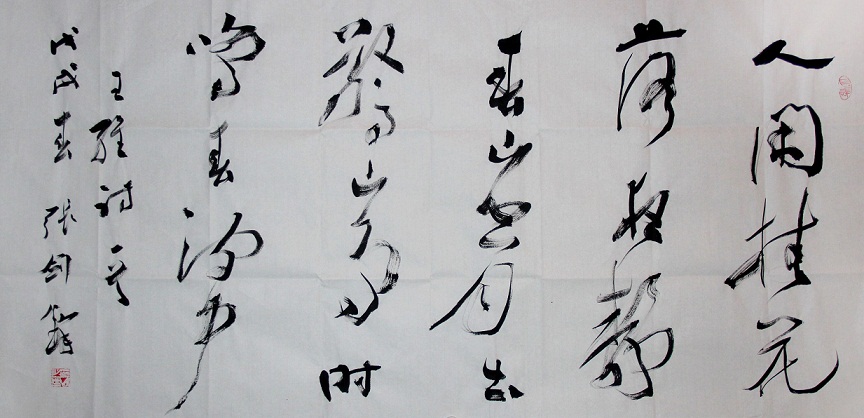 人闲桂花
落夜静
春山空月出
驚山鸟时
鸣春涧中
王维诗一首
戊戌春 张剑